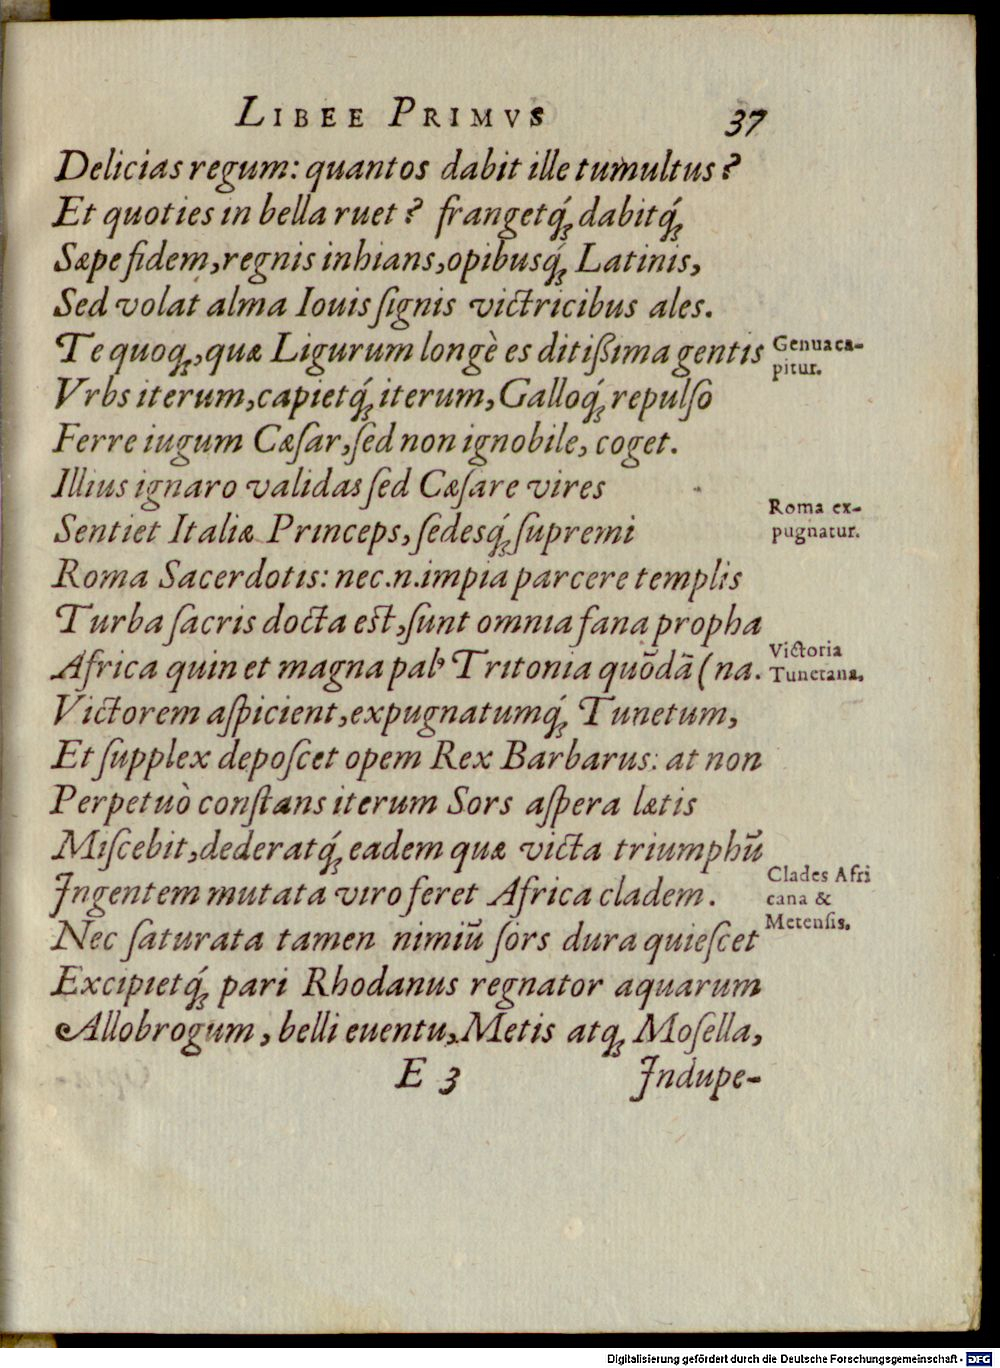 LIBEE PRIMVS 37
Delicias regum: quantos dabit ille tumultus?
Et quoties in bella ruet? frangetq́; dabitq́;
Sæpe fidem, regnis inhians, opibusq́; Latinis,
Sed volat alma Iouis ſignis victricibus ales.
Te quoq;, quæ Ligurum longè es ditißima gentis
Genua ca-
pitur.
Vrbs iterum, capietq́; iterum, Galloq́; repulſo
Ferre iugum Cæſar, ſed non ignobile, coget.
Illius ignaro validas ſed Cæſare vires
Roma ex-
pugnatur.
Sentiet Italiæ Princeps, ſedesq́; ſupremi
Roma Sacerdotis: nec.n.impia parcere templis
Turba ſacris docta est, ſunt omnia fana propha
Africa quin et magna pal⁹ Tritonia quōdā (na.
Victoria
Tunetana.
Victorem aſpicient, expugnatumq́; Tunetum,
Et ſupplex depoſcet opem Rex Barbarus: at non
Perpetuò conſtans iterum Sors aſpera lætis
Miſcebit, dederatq́; eadem quæ victa triumphū
Ingentem mutata viro feret Africa cladem.
Clades Afri
cana &
Metenſis.
Nec ſaturata tamen nimiū ſors dura quieſcet
Excipietq́; pari Rhodanus regnator aquarum
Allobrogum, belli euentu, Metis atq; Moſella,
E 3 Indupe-
Digitalisierung gefördert durch die Deutsche Forschungsgemeinschaft - DFG